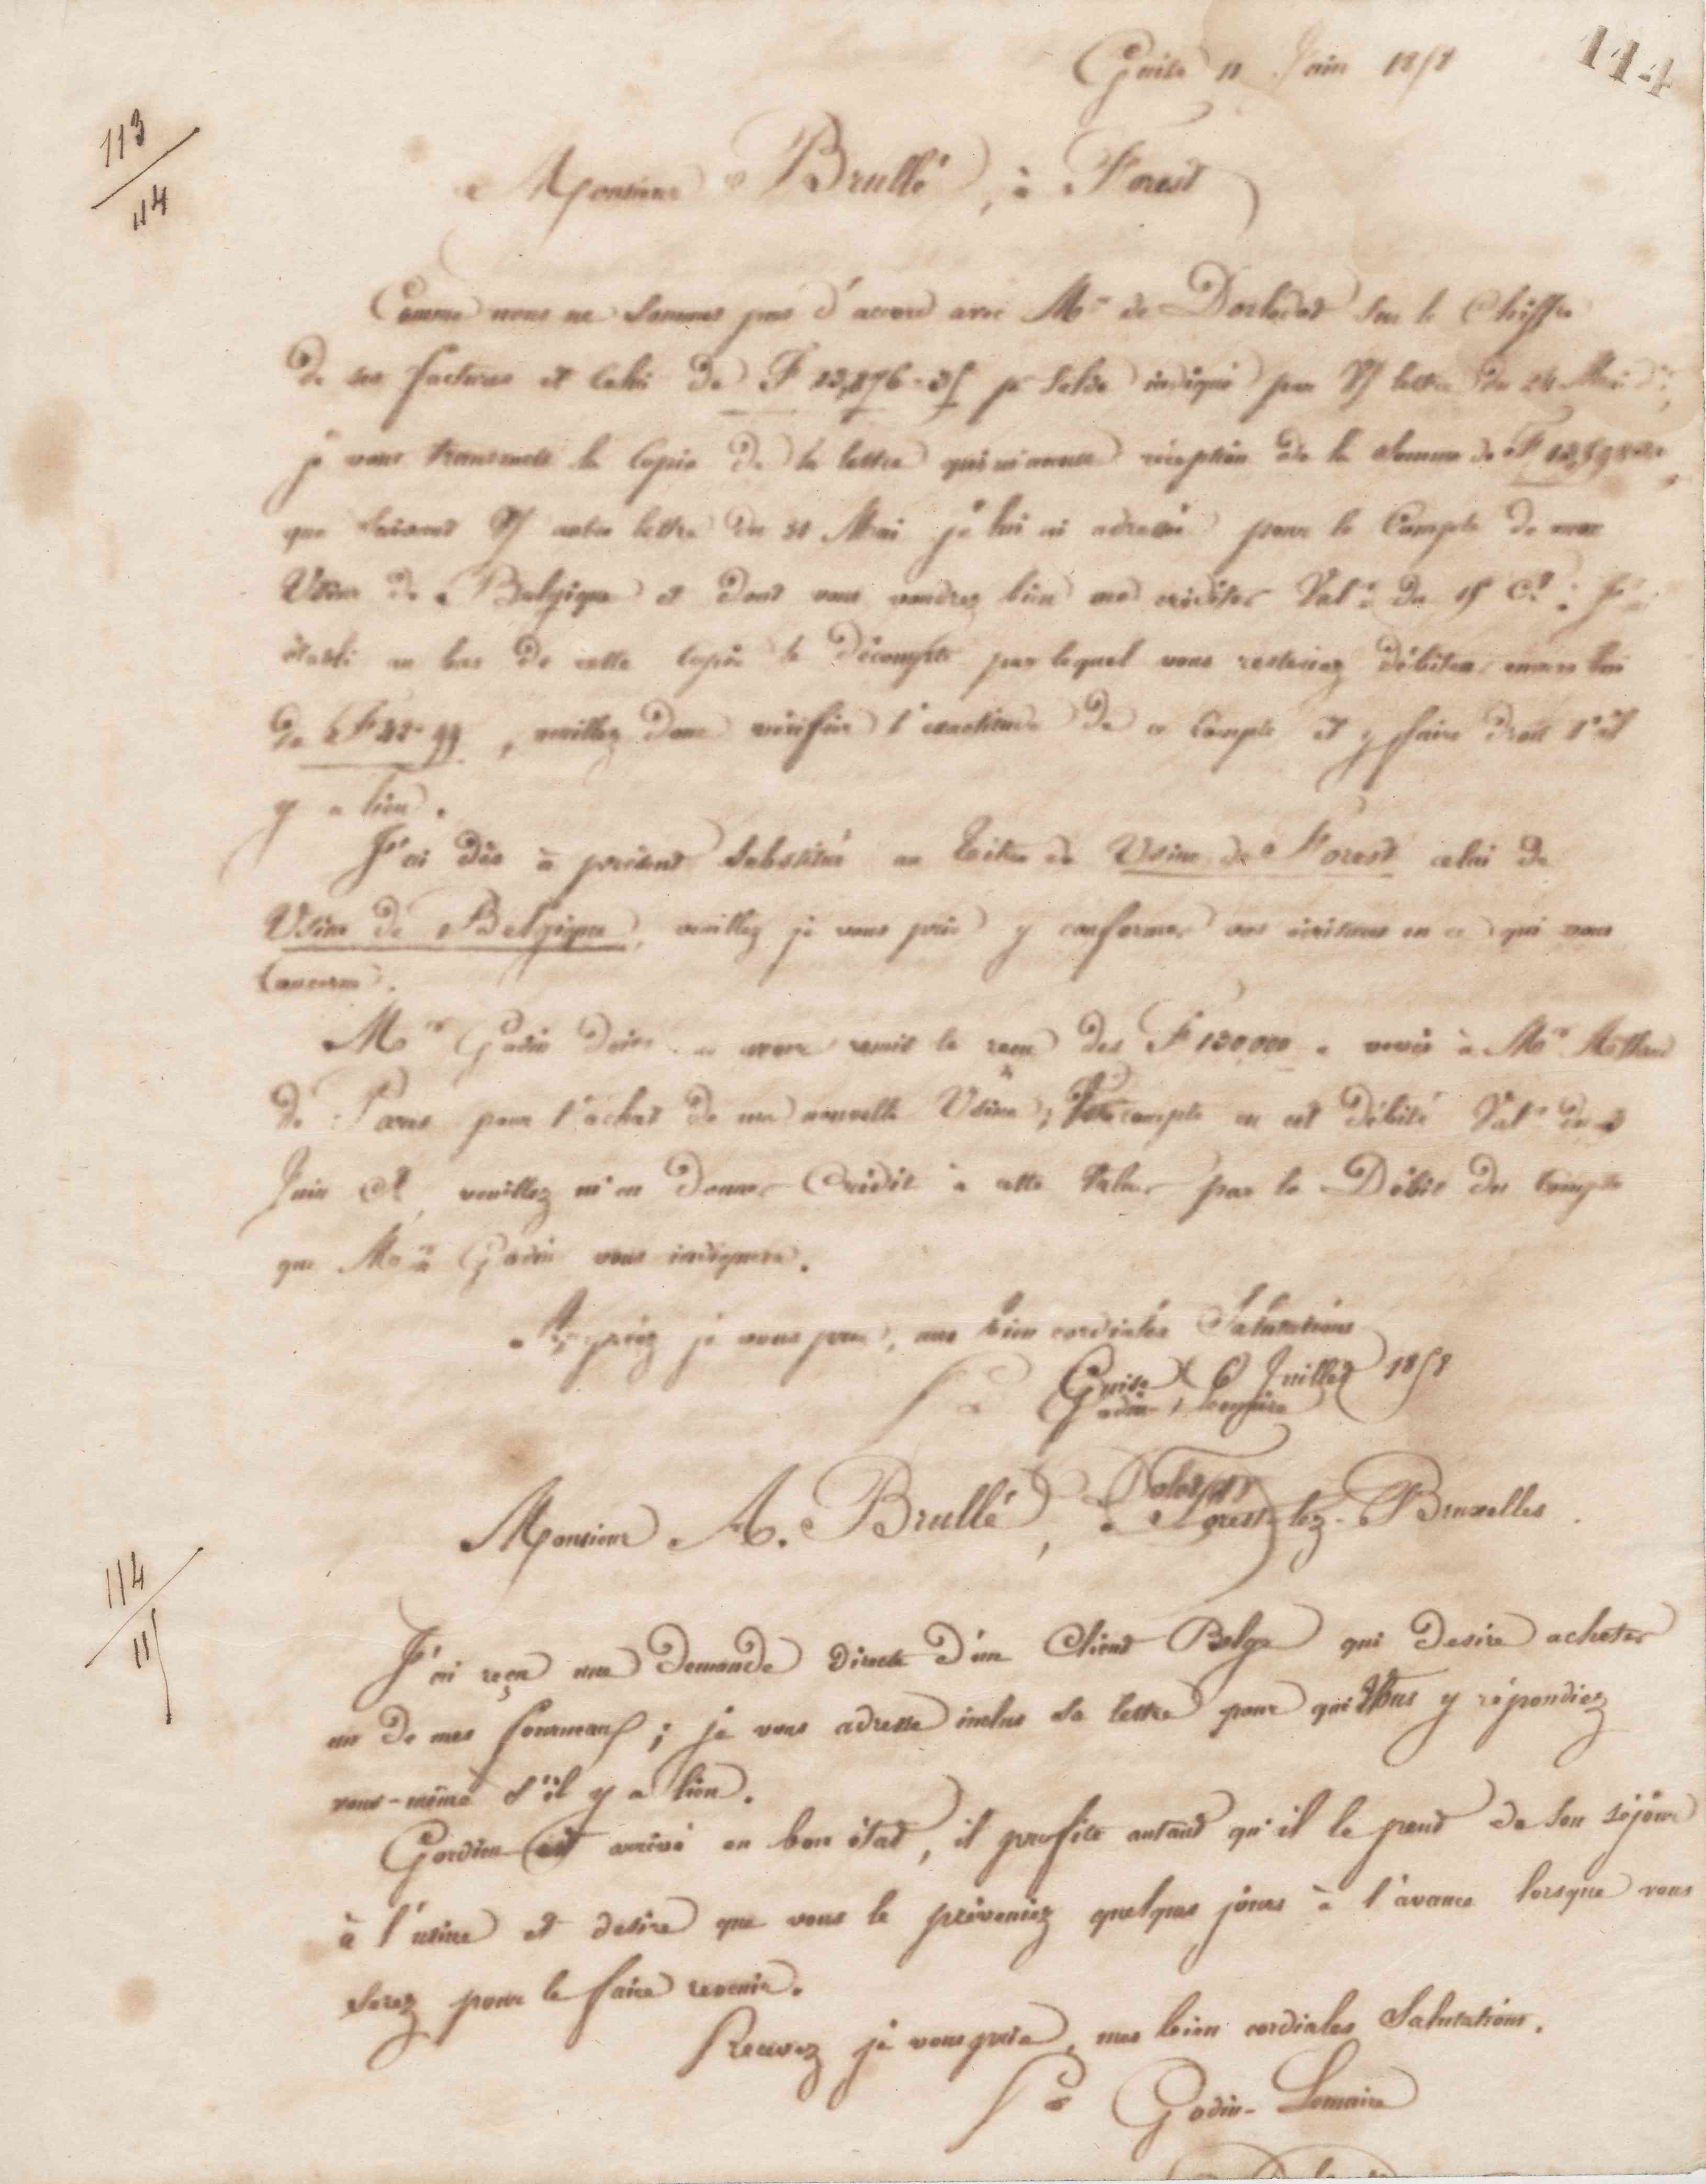 114
Guise 11 Juin 1858
113
114
Monsieur Brullé, à Forest
Comme nous ne sommes pas d'accord avec Mr de Dorlodot sur le Chiffre
de ses factures et celui de F 13,876-35 pr solde indiqué par V/ lettre du 24 Mai
je vous transmets la Copie de la lettre qui m'accuse réception de la somme de
que suivant V/ autre lettre du 31 Mai je lui ai adressée pour le Compte de mon
Usine de Belgique et dont vous voudrez bien me créditer Valr du 15 Ct. J'ai
établi au bas de cette Copie le décompte par lequel vous resteriez débiteur envers lui
de , veuillez donc vérifier l'exactitude de ce Compte et y faire droit s'il
y a lieu.
J'ai dès à présent substitué au titre de Usine de Forest celui de
Usine de Belgique, veuillez je vous prie y conformer vos écritures en ce qui vous
Concerne.
Mr Godin doit avoir remis le reçu des F 130,000 à Mr
de pour l'achat de ma nouvelle Usine ; compte en est débité Valr du
Juin Ct, veuillez m'en donner Crédit à cette Valeur par le Débit du Compte
que Mr Godin vous indiquera.
je vous prie, mes bien cordiales Salutations
Guise 6 Juillet 1858
Godin-Lemaire
Monsieur A. Brullé, à Forest-lez-Bruxelles.
114
115
J'ai reçu une demande directe d'un Client Belge qui desire acheter
un de mes fourneaux ; je vous adresse inclus sa lettre pour que Vous y répondiez
vous-même s'il y a lieu.
Gordien est arrivé en bon état, il profite autant qu'il le peut de son séjour
à l'usine et desire que vous le préveniez quelques jours à l'avance lorsque vous
serez pour le faire revenir.
Recevez je vous prie, mes bien cordiales Salutations.
Godin-Lemaire